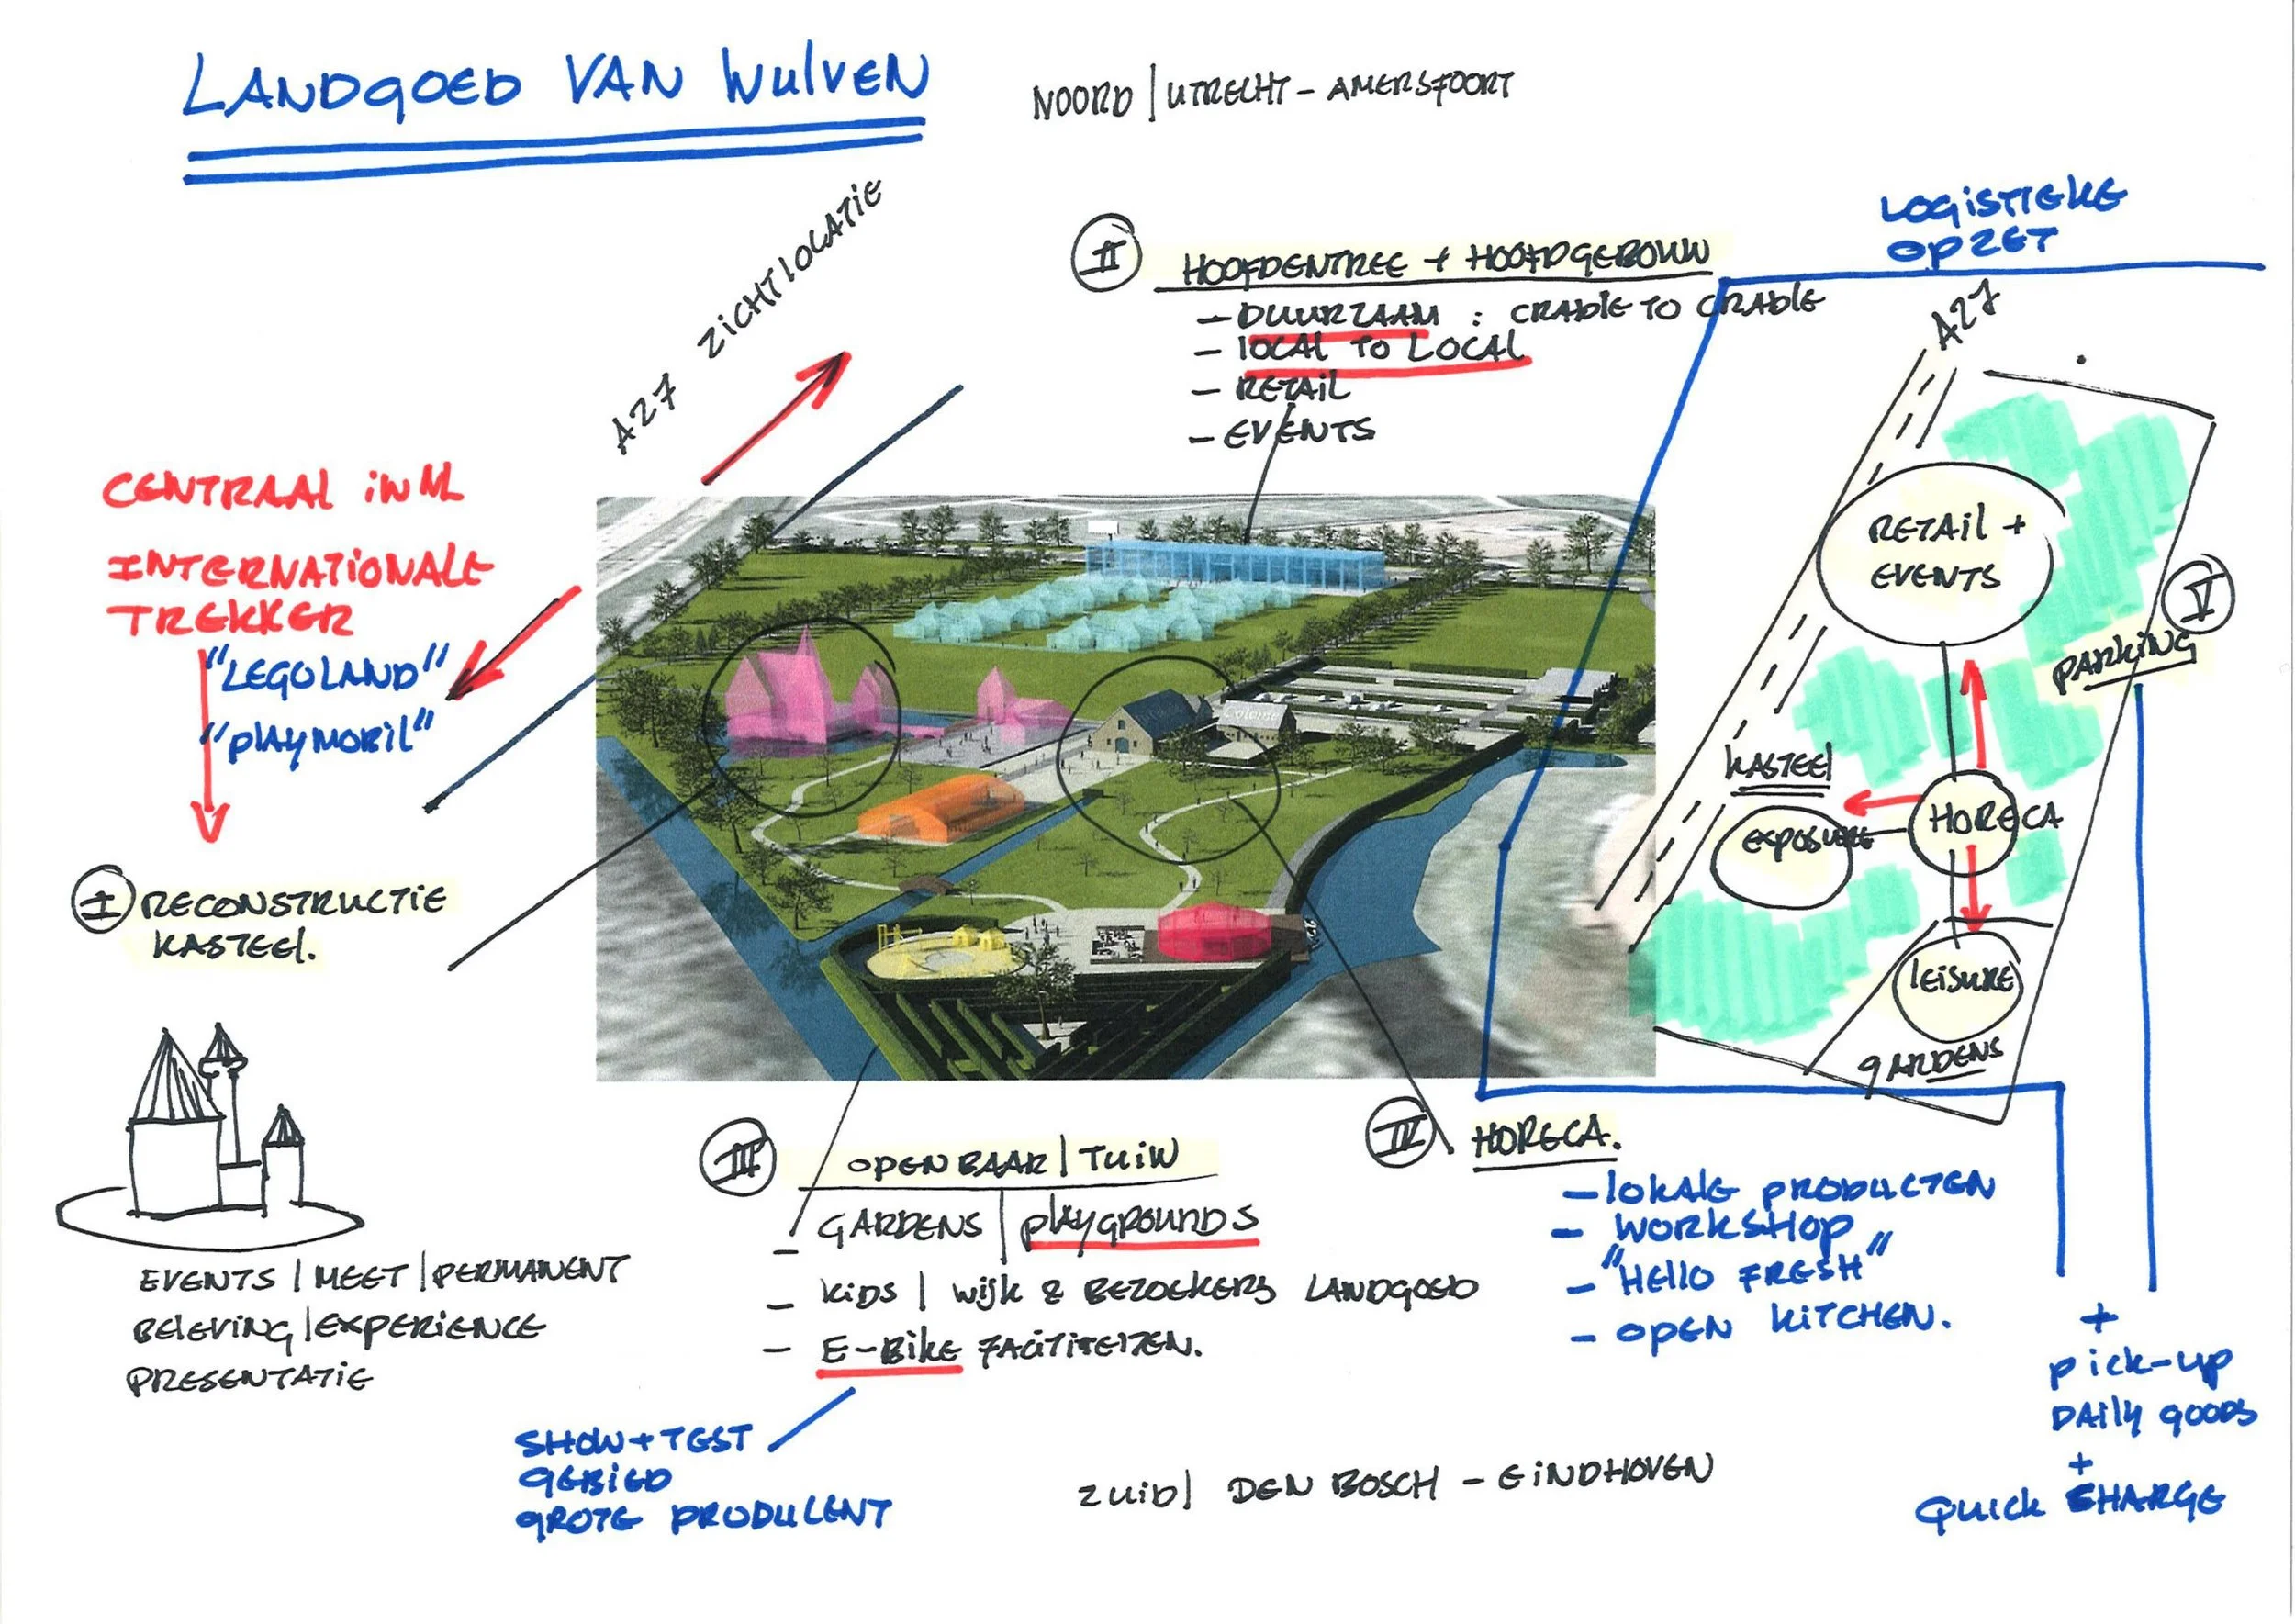 LANDGOED VAN WULVEN
NOORD | UTRECHT - AMERSFOORT
A27 ZICHTLOCATIE
II
HOOFDENTREE + HOOFDGEBOUW
- DUURZAAM : CRADLE TO CRADLE
- LOCAL TO LOCAL
- RETAIL
- EVENTS
LOGISTIEKE
OPZET
A27
RETAIL +
EVENTS
V
PARKING
KASTEEL
EXPOSURE
HORECA
LEISURE
GARDENS
CENTRAAL IN NL
INTERNATIONALE
TREKKER
"LEGOLAND"
"PLAYMOBIL"
I RECONSTRUCTIE
KASTEEL.
EVENTS | MEET | PERMANENT
BELEVING | EXPERIENCE
PRESENTATIE
III
OPENBAAR | TUIN
- GARDENS | PLAYGROUNDS
- KIDS | WIJK & BEZOEKERS LANDGOED
- E-BIKE FACILITEITEN.
SHOW + TEST
GEBIED
GROTE PRODUCENT
IV
HORECA.
- LOKALE PRODUCTEN
- WORKSHOP
- "HELLO FRESH"
- OPEN KITCHEN.
+
PICK-UP
DAILY GOODS
+
QUICK CHARGE
ZUID | DEN BOSCH - EINDHOVEN